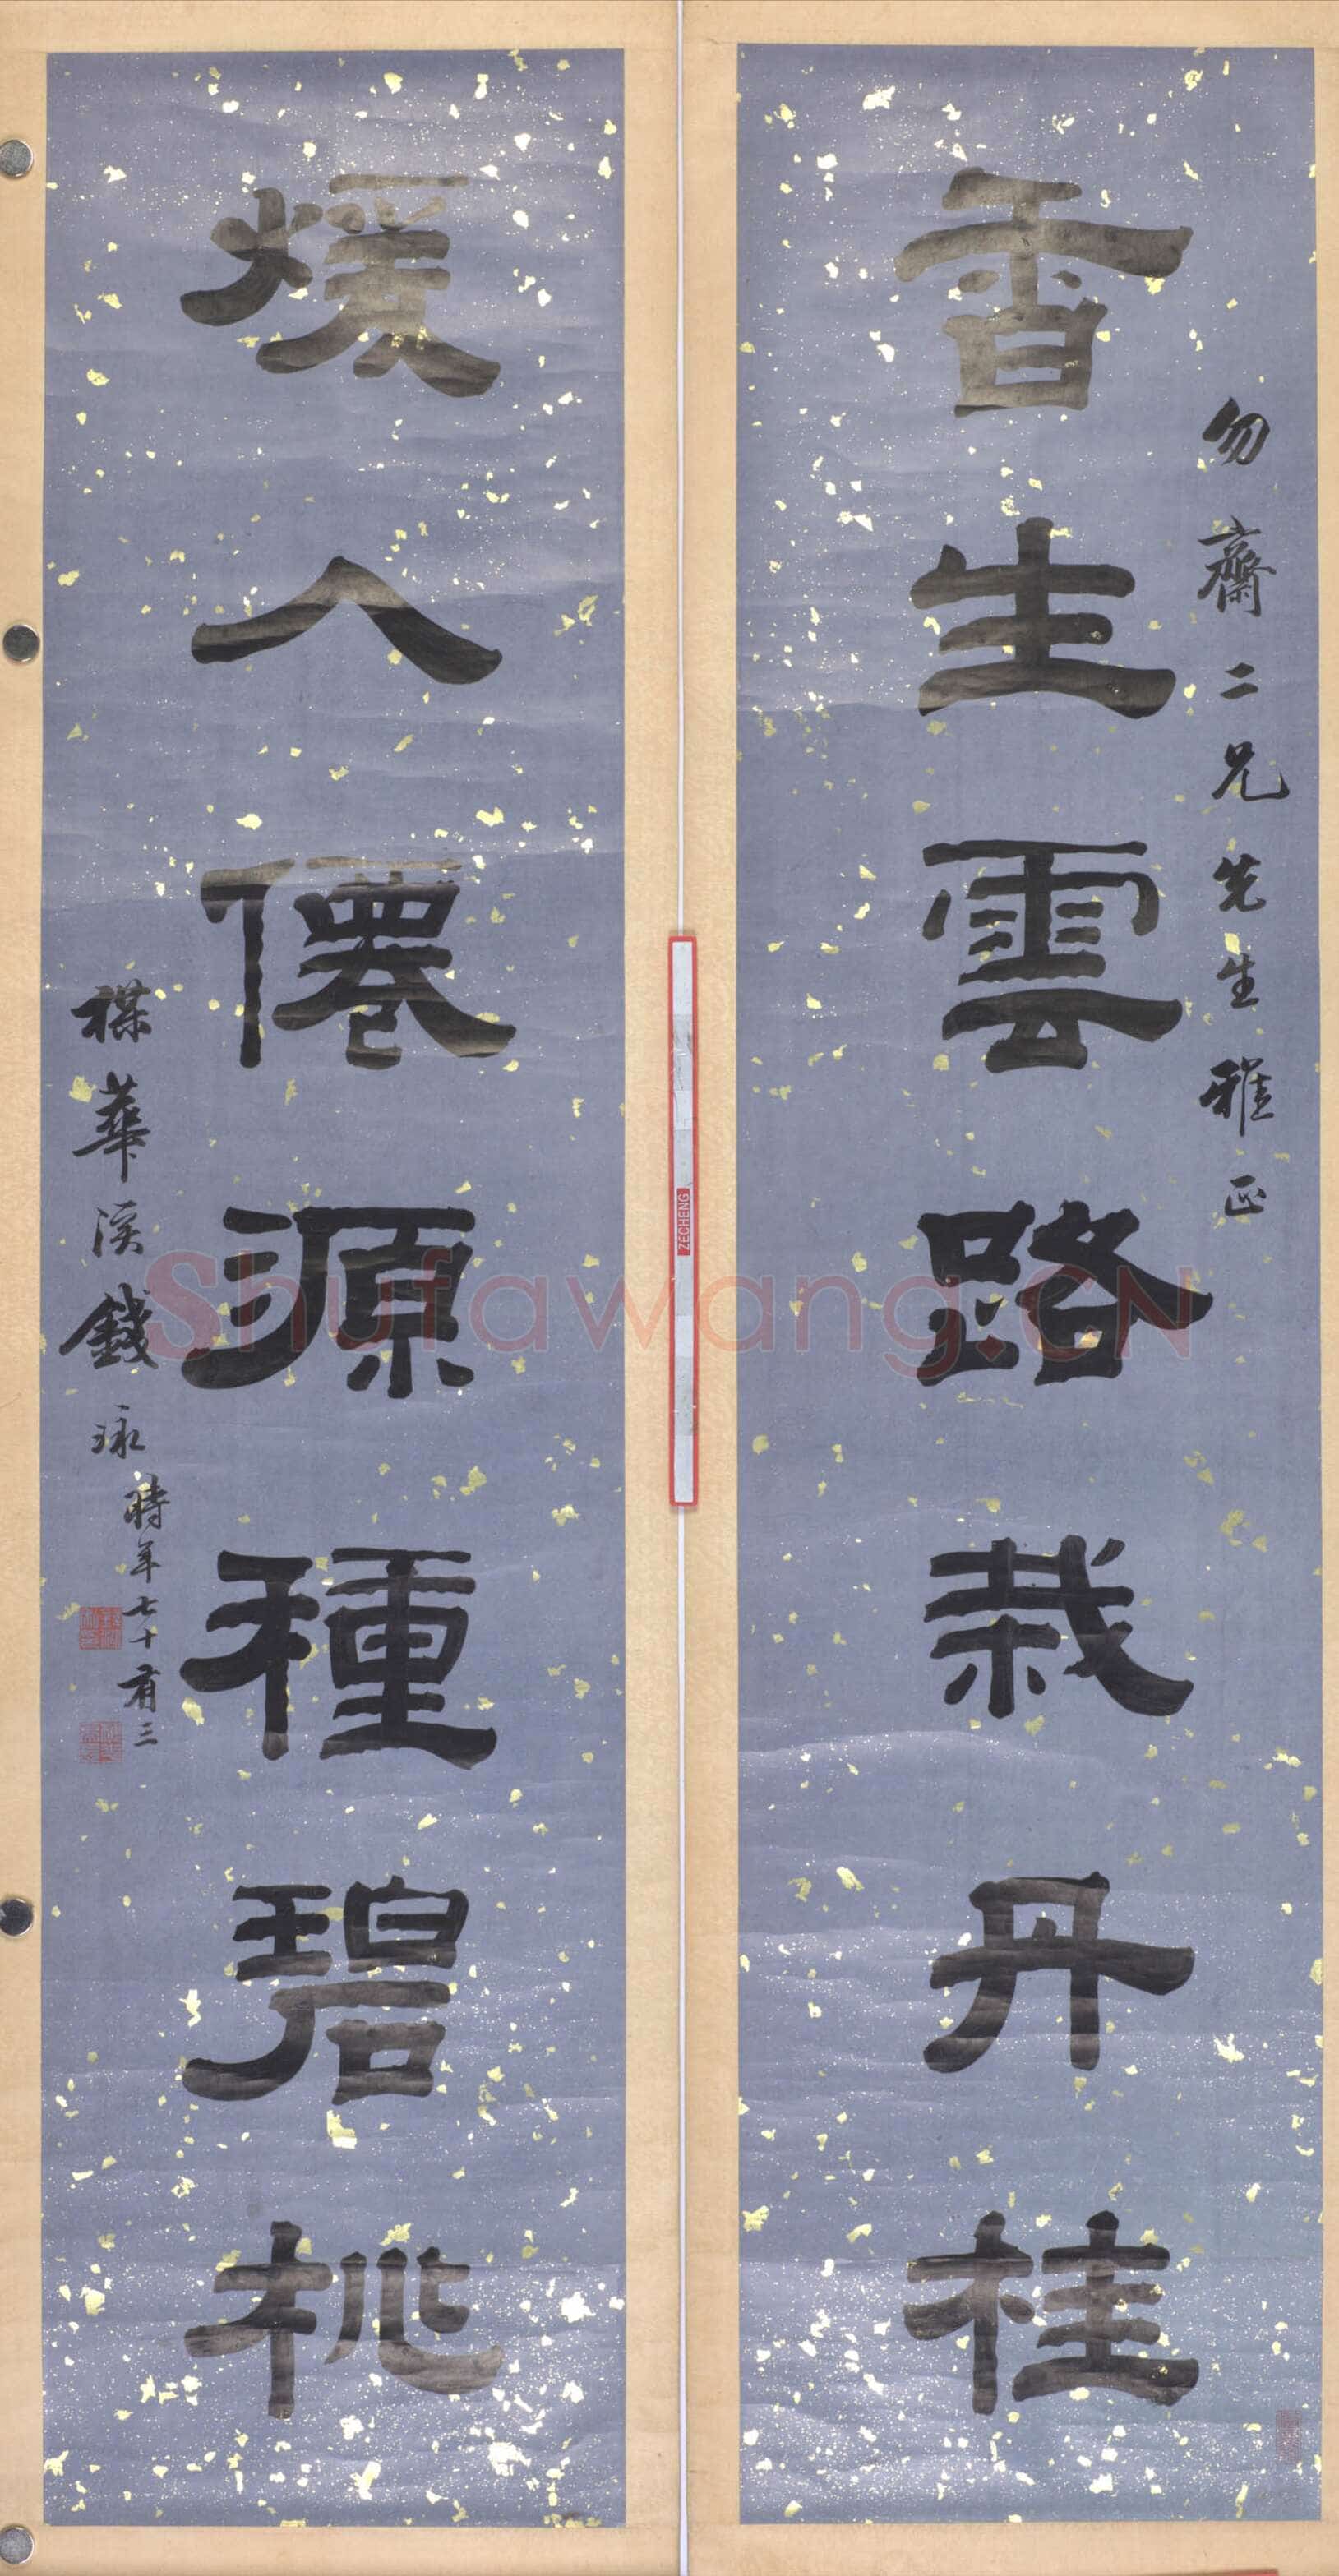 勿齋二兄先生雅正
香生雲路栽丹桂
煖入僊源種碧桃
楳華溪錢泳時年七十有三
Shufawang.CN
ZECHENG